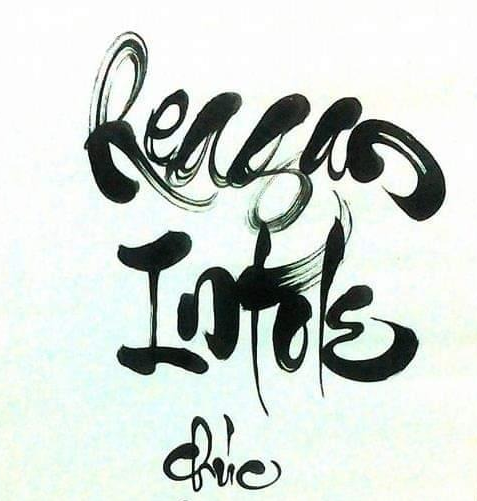 Reagan
Intole
chúc